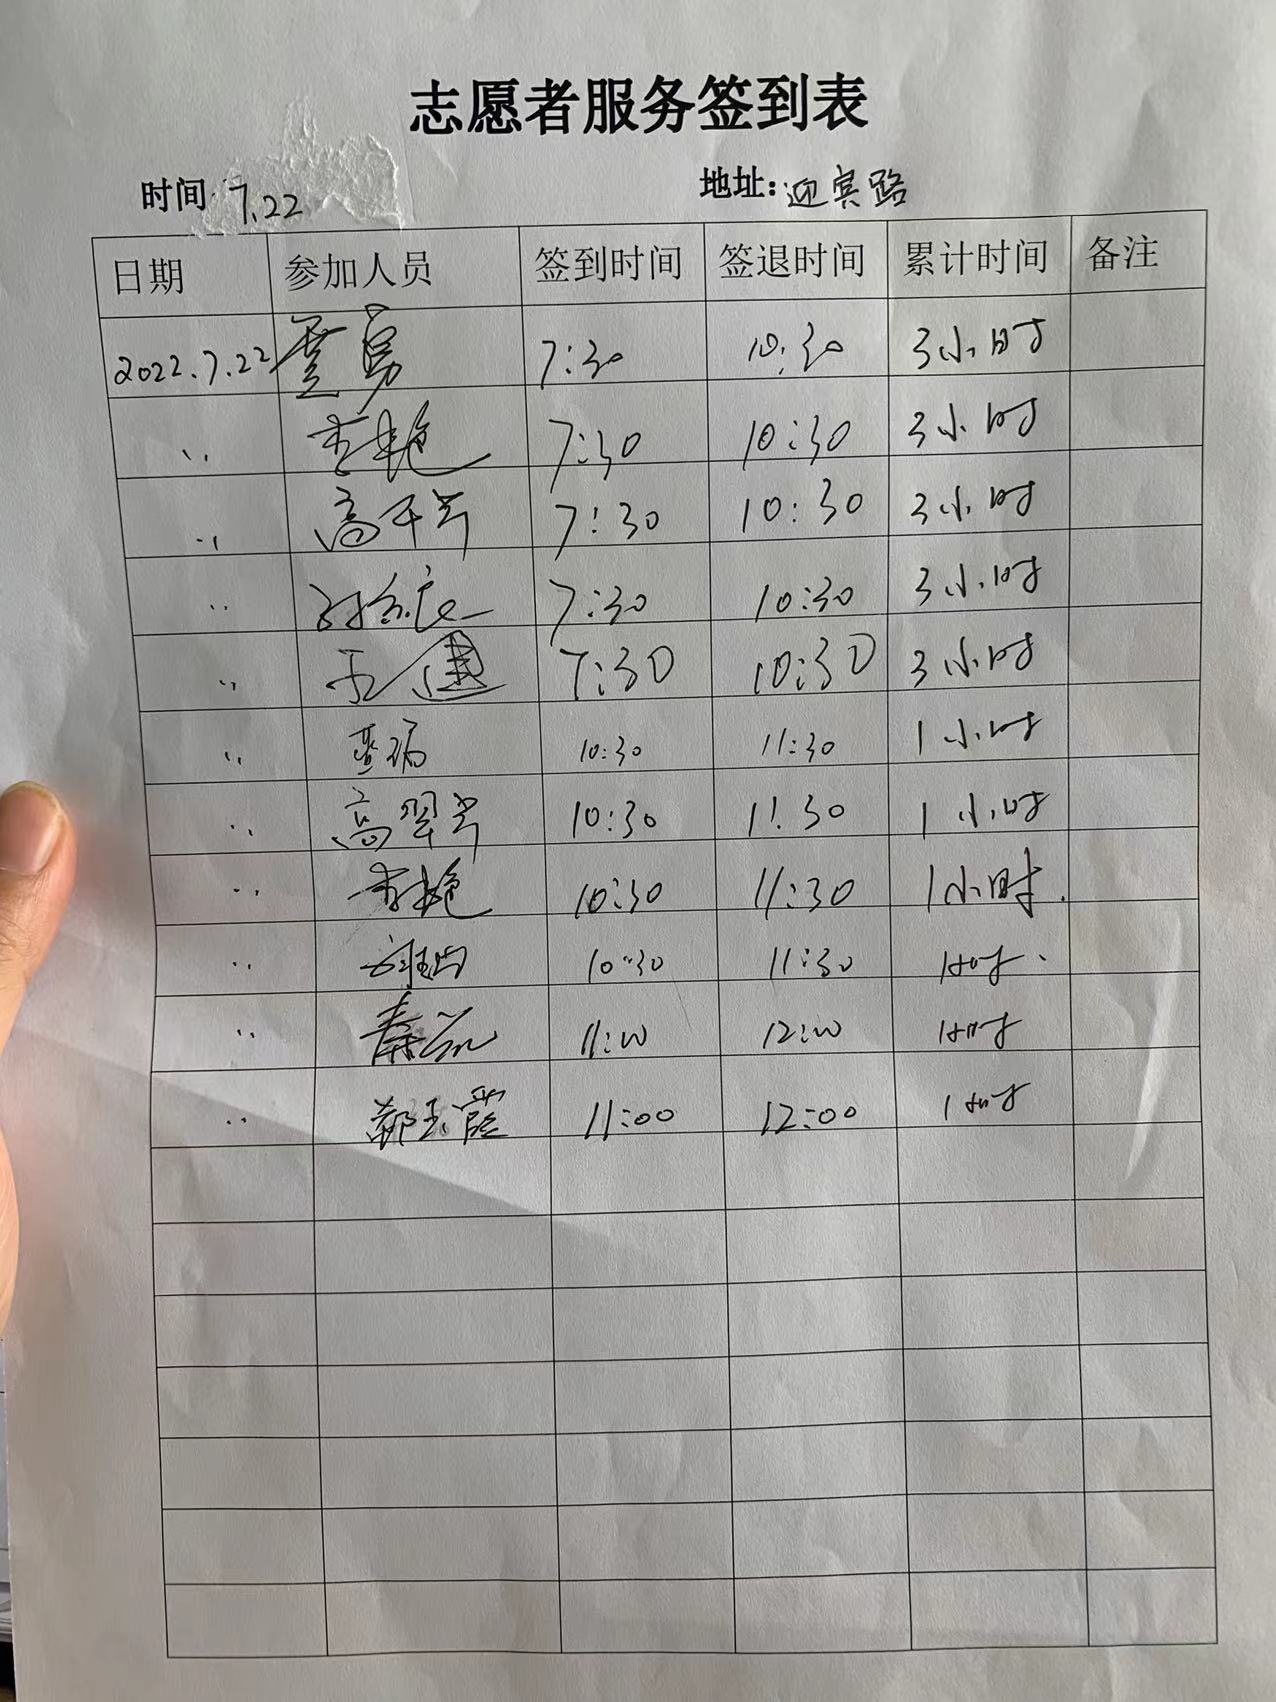 志愿者服务签到表
时间 7.22 地址:迎宾路
日期 参加人员 签到时间 签退时间 累计时间 备注
2022.7.22 7:30 10:30 3小时
〃 李艳 7:30 10:30 3小时
〃 7:30 10:30 3小时
〃 7:30 10:30 3小时
〃 王建 7:30 10:30 3小时
〃 10:30 11:30 1小时
〃 高翠 10:30 11:30 1小时
〃 李艳 10:30 11:30 1小时.
〃 10:30 11:30 1小时.
〃 秦 11:00 12:00 1小时
〃 郝玉霞 11:00 12:00 1小时